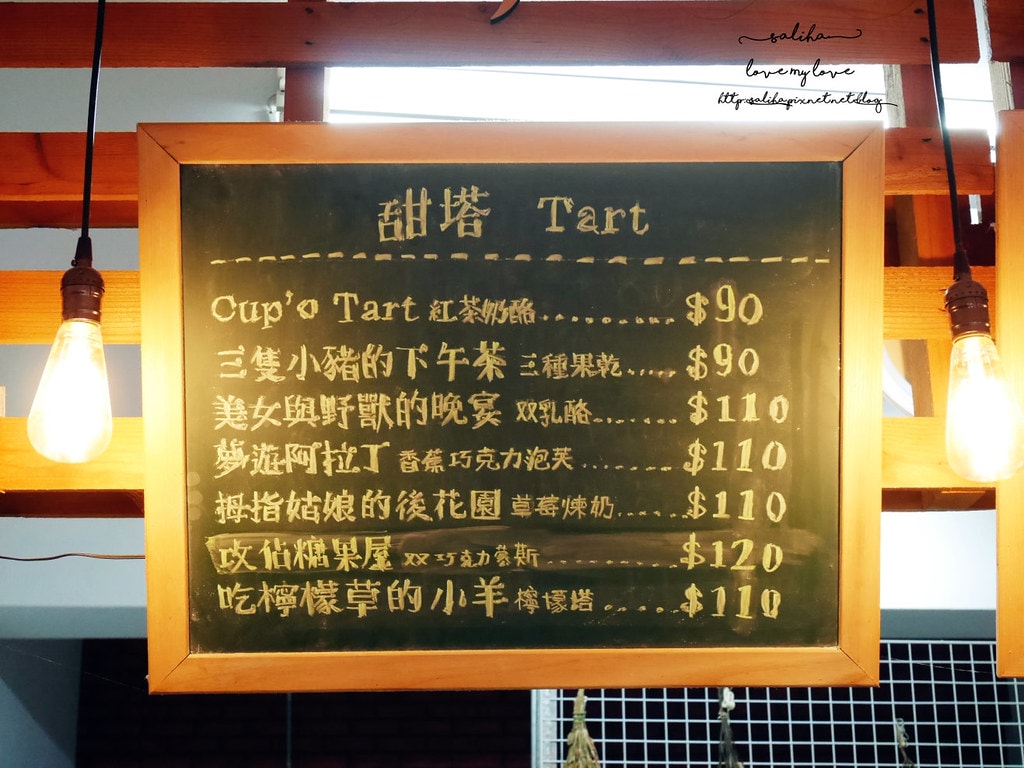 saliha
love my love
http:saliha.pixnet.net.blog
甜塔 Tart
Cup'o Tart 紅茶奶酪.............. $90
三隻小豬的下午茶 三種果乾...... $90
美女與野獸的晚宴 双乳酪....... $110
夢遊阿拉丁 香蕉巧克力泡芙....... $110
拇指姑娘的後花園 草莓煉奶....... $110
攻佔糖果屋 双巧克力慕斯.............. $120
吃檸檬草的小羊 檸檬塔...... $110